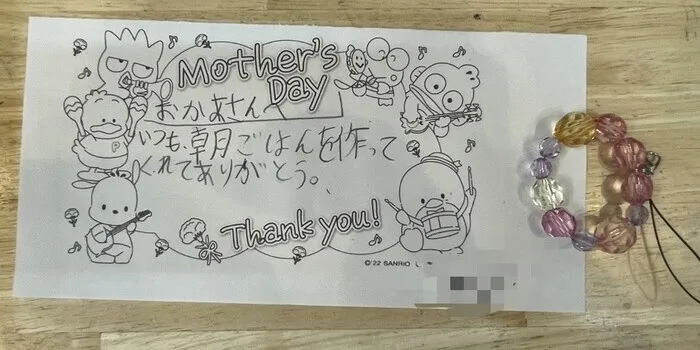 Mother's
Day
おかあさんへ
いつも、朝ごはんを作って
くれてありがとう。
P
Thank you!
©'22 SANRIO